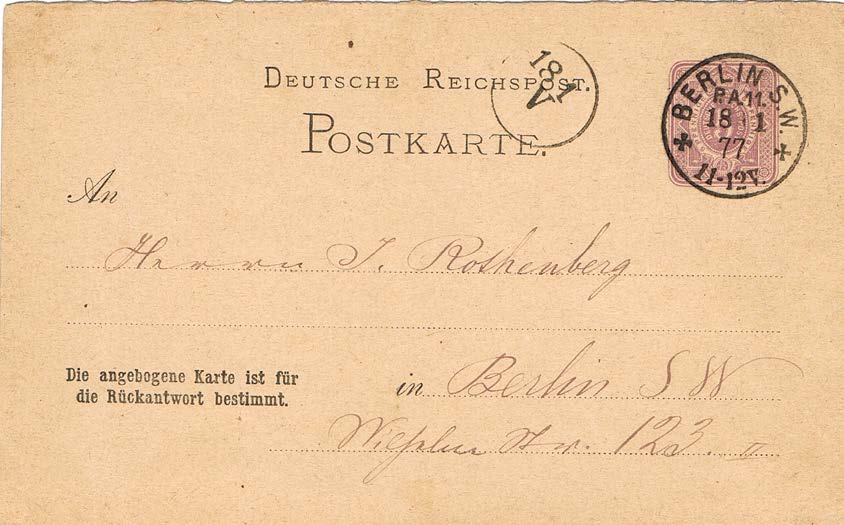 DEUTSCHE REICHSPOST.
POSTKARTE.
18 1
V
BERLIN S.W.
P.A.11.
18 1
77
11-12V.
An
Herrn J. Rothenberg
Die angebogene Karte ist für
die Rückantwort bestimmt.
in Berlin S W
Wilhelm Str. 123. II